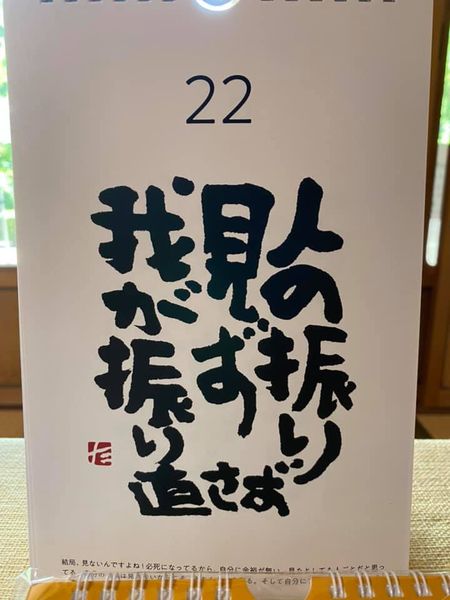 22
人の振り
見ず
我が振り
直さず
結局、見ないんですよね！必死になってるから、自分に余裕が無い。見たとしても人ごとだと思っ
てる。 る。そして自分に